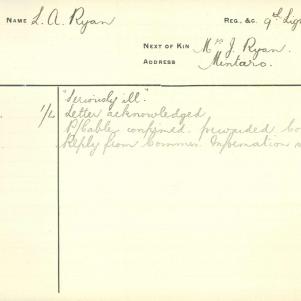 NAME L. A. Ryan REG. &C. 9th Lig
NEXT OF KIN Mrs J. Ryan.
ADDRESS Mintaro.
"Seriously ill."
1/2 Letter acknowledged
P/Cable confirmed. forwarded Co
Reply from Commn. Information